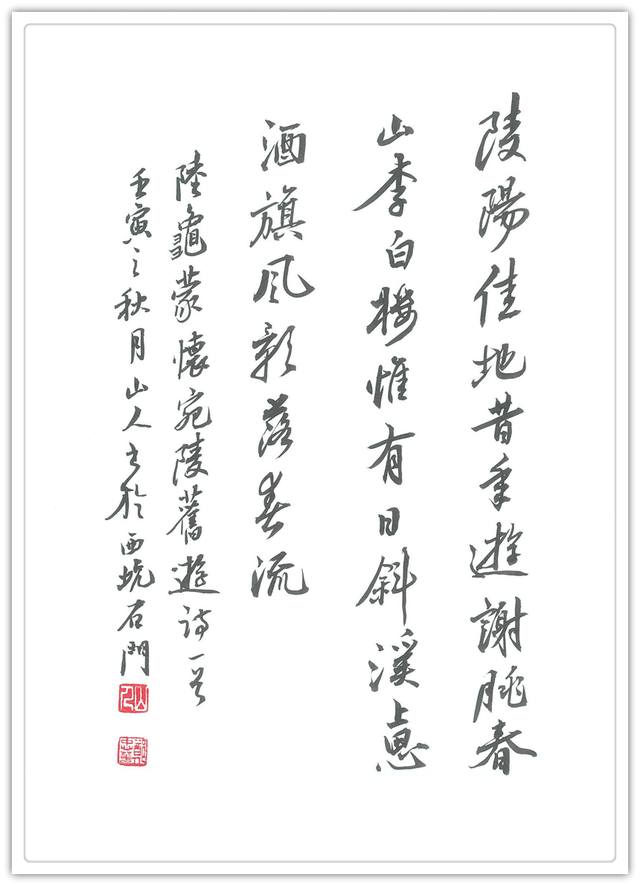 陵陽佳地昔年遊謝朓春
山李白楼惟有日斜溪上思
酒旗風影落春流
陸龜蒙懷宛陵舊遊詩一首
壬寅之秋月山人書於西坑石門
山人